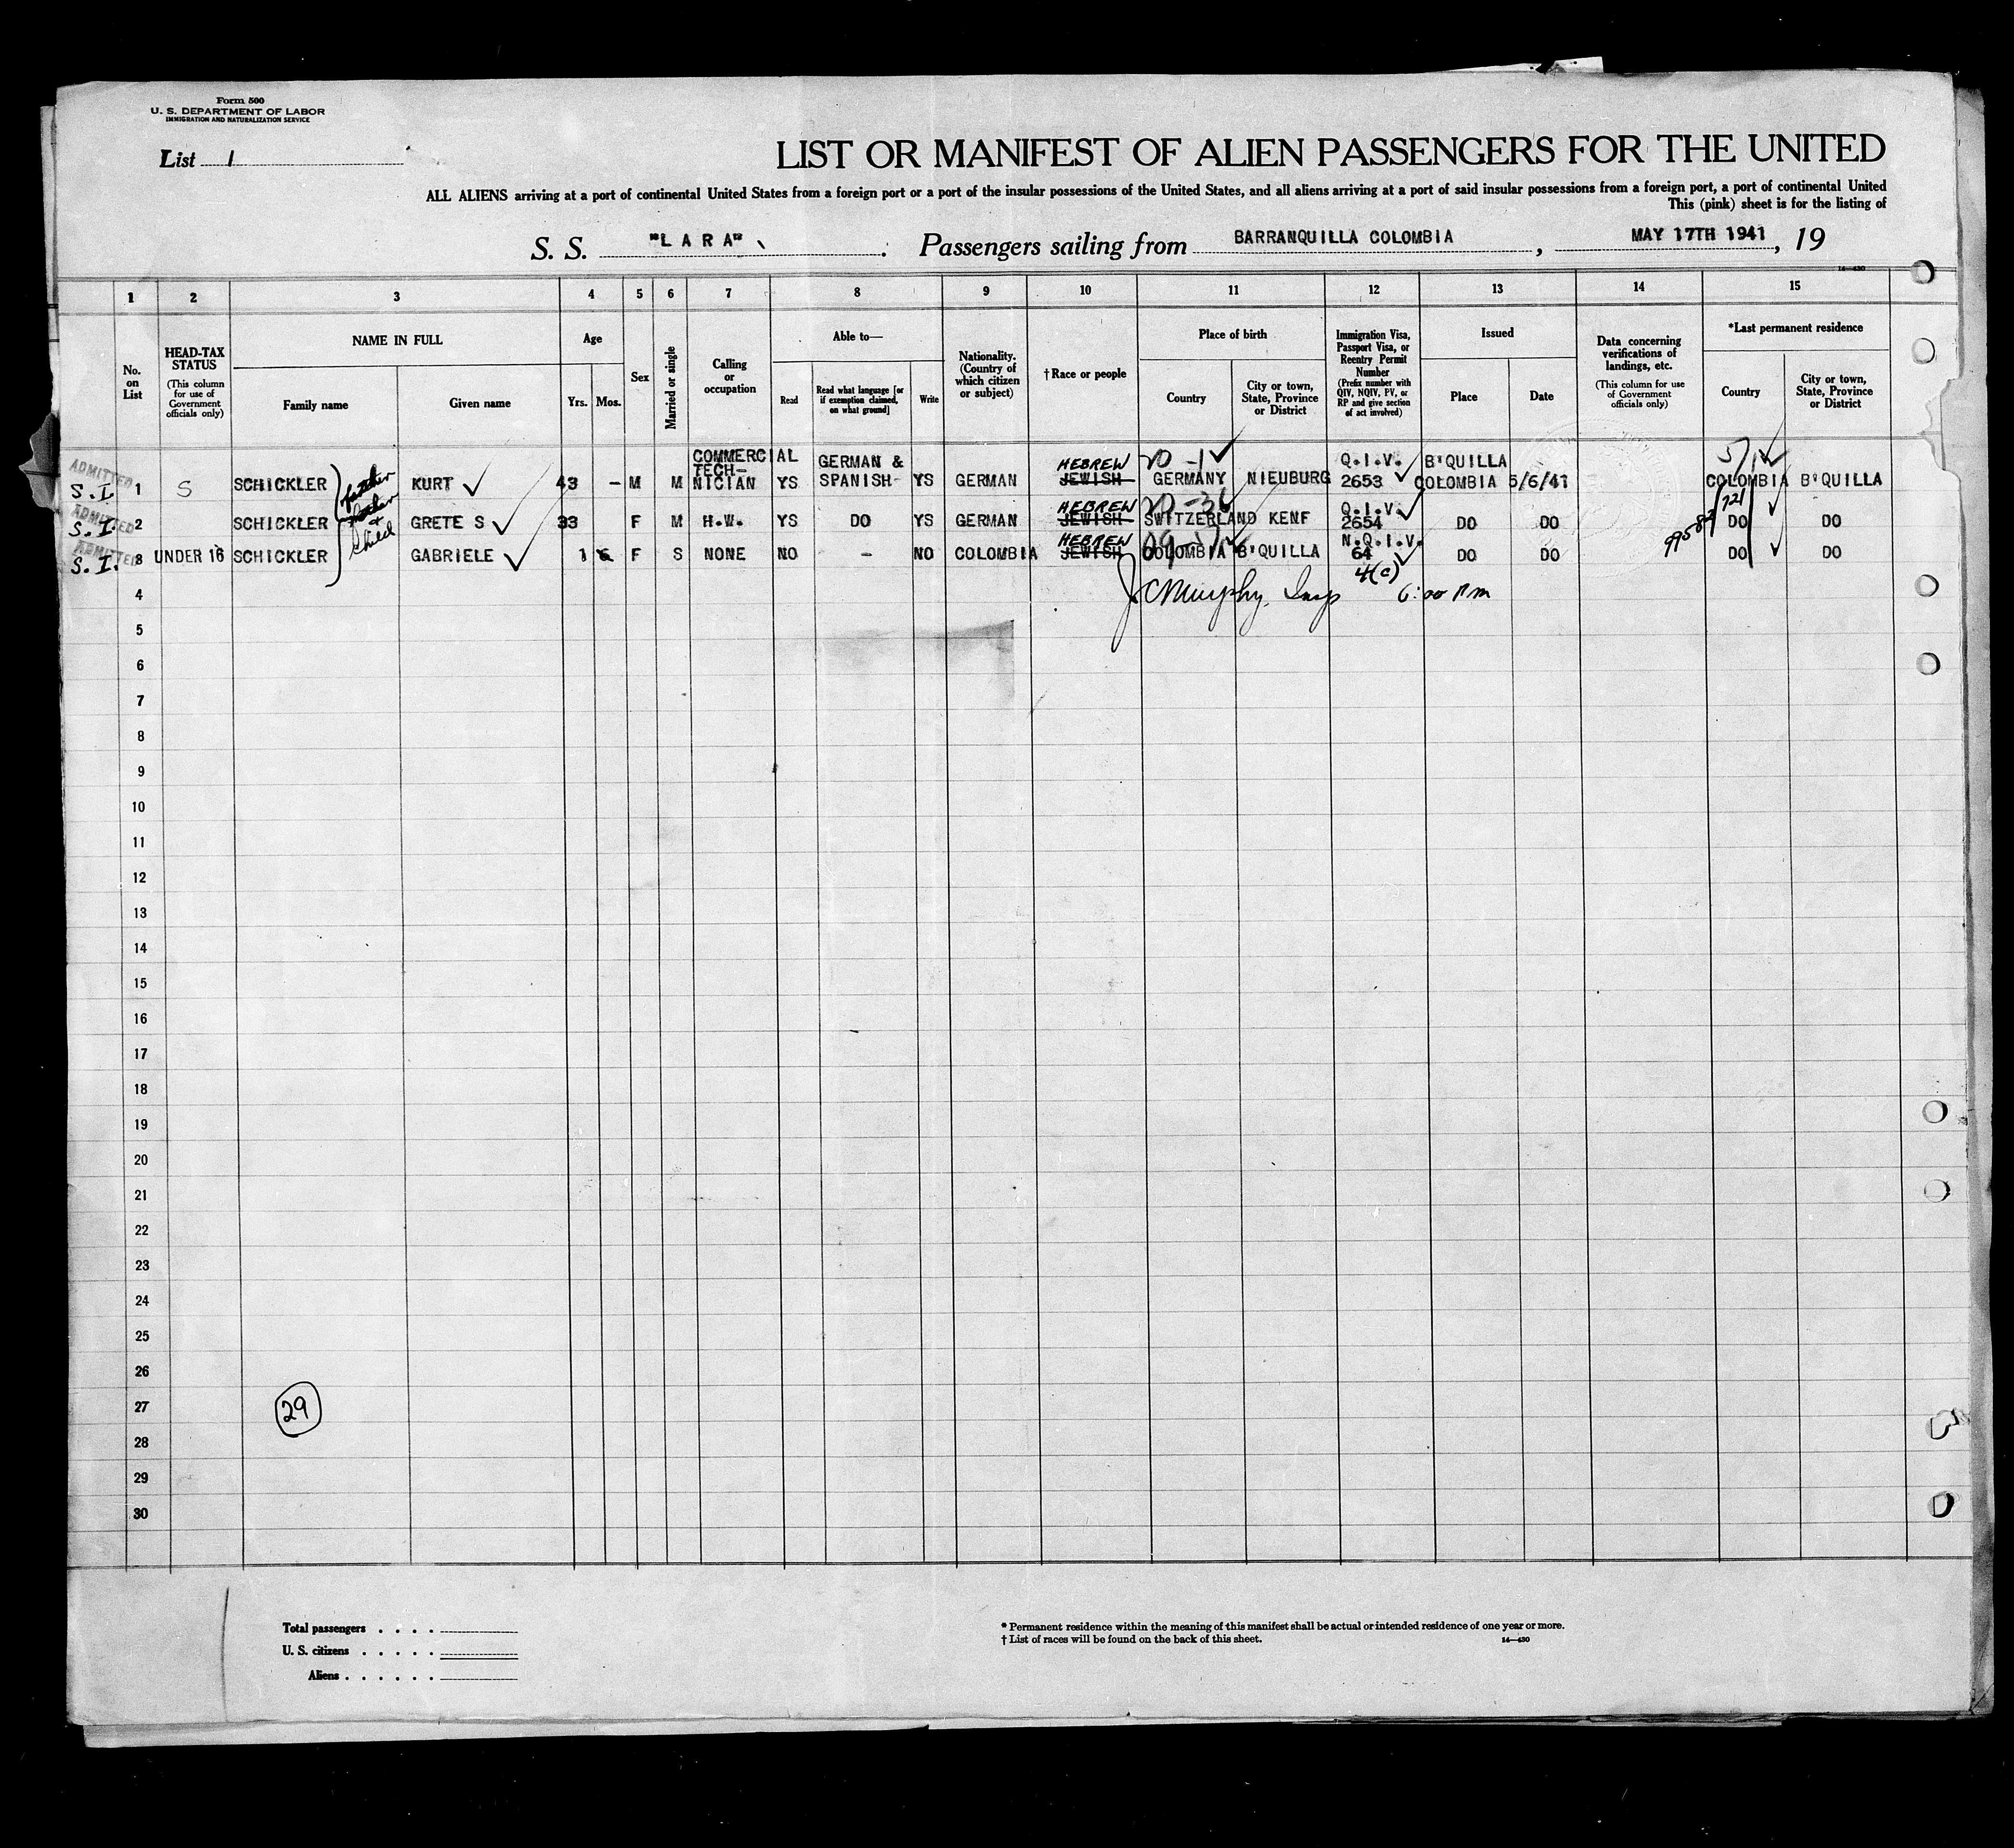 Form 500
U. S. DEPARTMENT OF LABOR
IMMIGRATION AND NATURALIZATION SERVICE
List 1
LIST OR MANIFEST OF ALIEN PASSENGERS FOR THE UNITED
ALL ALIENS arriving at a port of continental United States from a foreign port or a port of the insular possessions of the United States, and all aliens arriving at a port of said insular possessions from a foreign port, a port of continental United
This (pink) sheet is for the listing of
S. S. "LARA" . Passengers sailing from BARRANQUILLA COLOMBIA , MAY 17TH 1941 , 19
14—430
1 2 3 4 5 6 7 8 9 10 11 12 13 14 15
No. on List
HEAD-TAX STATUS
(This column for use of Government officials only)
NAME IN FULL
Family name
Given name
Age
Yrs. Mos.
Sex
Married or single
Calling or occupation
Able to—
Read
Read what language [or if exemption claimed, on what ground]
Write
Nationality. (Country of which citizen or subject)
†Race or people
Place of birth
Country
City or town, State, Province or District
Immigration Visa, Passport Visa, or Reentry Permit Number
(Prefix number with QIV, NQIV, PV, or RP and give section of act involved)
Issued
Place
Date
Data concerning verifications of landings, etc.
(This column for use of Government officials only)
*Last permanent residence
Country
City or town, State, Province or District
ADMITTED S.I. 1 S SCHICKLER father KURT 43 - M M COMMERCIAL TECH-NICIAN YS GERMAN & SPANISH YS GERMAN HEBREW JEWISH GERMANY NIEUBURG Q.I.V. 2653 B'QUILLA COLOMBIA 5/6/41 COLOMBIA B'QUILLA
ADMITTED S.I. 2 SCHICKLER GRETE S 33 F M H.W. YS DO YS GERMAN HEBREW JEWISH SWITZERLAND KENF Q.I.V. 2654 DO DO DO DO
ADMITTED S.I. 3 UNDER 16 SCHICKLER child GABRIELE 1 6 F S NONE NO - NO COLOMBIA HEBREW JEWISH COLOMBIA B'QUILLA N.Q.I.V. 64 4(c) DO DO DO DO
4 JC Murphy, Insp 6:00 PM
5
6
7
8
9
10
11
12
13
14
15
16
17
18
19
20
21
22
23
24
25
26
27
29
28
29
30
Total passengers . . . .
U. S. citizens . . . . .
Aliens . . . . . .
* Permanent residence within the meaning of this manifest shall be actual or intended residence of one year or more.
† List of races will be found on the back of this sheet.
14—430